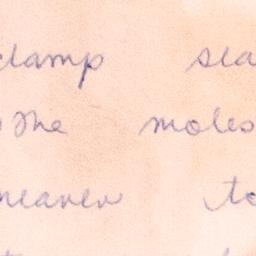 clamp sla
The moles
nearer to